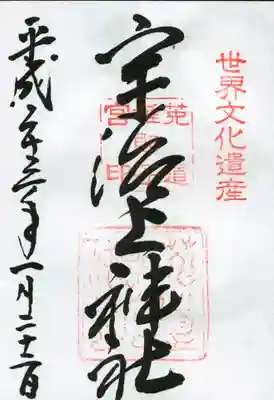 世界文化遺産
宇治上神社
平成二十三年一月二十二日